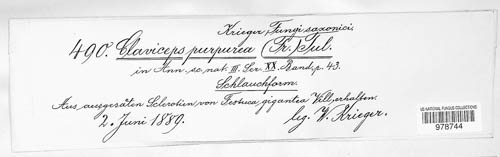 Krieger, Fungi saxonici.
490. Claviceps purpurea (Fr.) Tul.
in Ann. sc. nat. III. Ser. XX. Band, p. 43.
Schlauchform.
Aus ausgesäten Sclerotien von Festuca gigantea Vill. erhalten.
2. Juni 1889. leg. W. Krieger.
US NATIONAL FUNGUS COLLECTIONS
978744